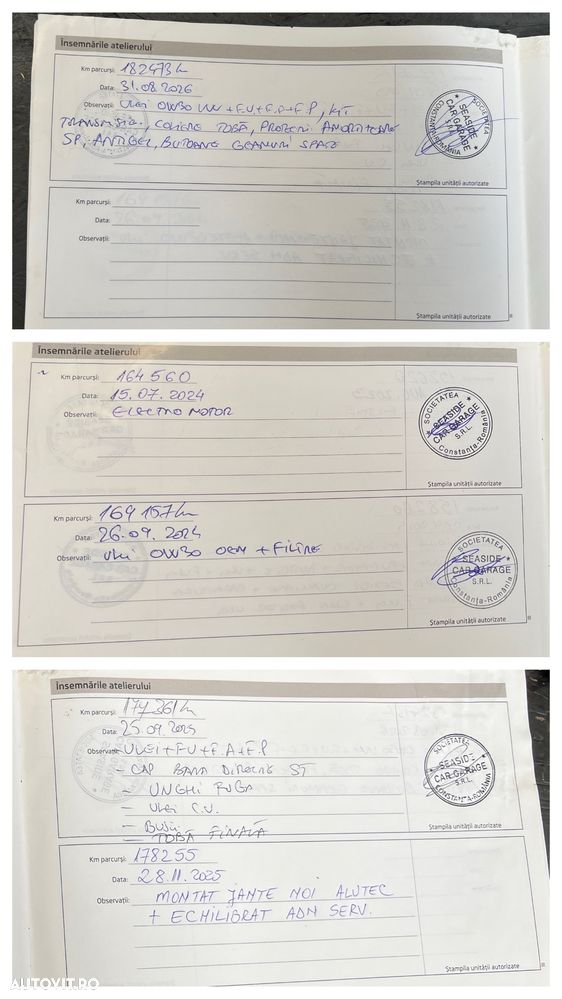 Însemnările atelierului
Km parcurși: 182473 km
Data: 31.08.2026
Observații: ULEI 0W30 VW + F.U + F.A + F.P, KIT
TRANSMISIE, COLIERE TOBĂ, PROTECȚII AMORTIZOARE
SP, ANTIGEL, BUTOANE GEAMURI SPATE
SOCIETATEA
SEASIDE
CAR GARAGE
S.R.L.
CONSTANȚA-ROMÂNIA
Ștampila unității autorizate
Km parcurși:
Data:
Observații:
Ștampila unității autorizate
Însemnările atelierului
Km parcurși: 164560
Data: 15.07.2024
Observații: ELECTROMOTOR
SOCIETATEA
SEASIDE
CAR GARAGE
S.R.L.
Constanța-România
Ștampila unității autorizate
Km parcurși: 169157 km
Data: 26.09.2024
Observații: ULEI 0W30 OEM + FILTRE
SOCIETATEA
SEASIDE
CAR GARAGE
S.R.L.
Constanța-România
Ștampila unității autorizate
Însemnările atelierului
Km parcurși: 177361 km
Data: 25.09.2025
Observații: ULEI + F.U + F.A + F.P
- CAP BARA DIRECȚIE ST
- UNGHI FUGA
- ULEI C.V.
- BUJII
- TOBĂ FINALĂ
SOCIETATEA
SEASIDE
CAR GARAGE
S.R.L.
CONSTANȚA-ROMÂNIA
Ștampila unității autorizate
Km parcurși: 178255
Data: 28.11.2025
Observații: MONTAT JANTE NOI ALUTEC
+ ECHILIBRAT ADN SERV.
Ștampila unității autorizate
AUTOVIT.RO